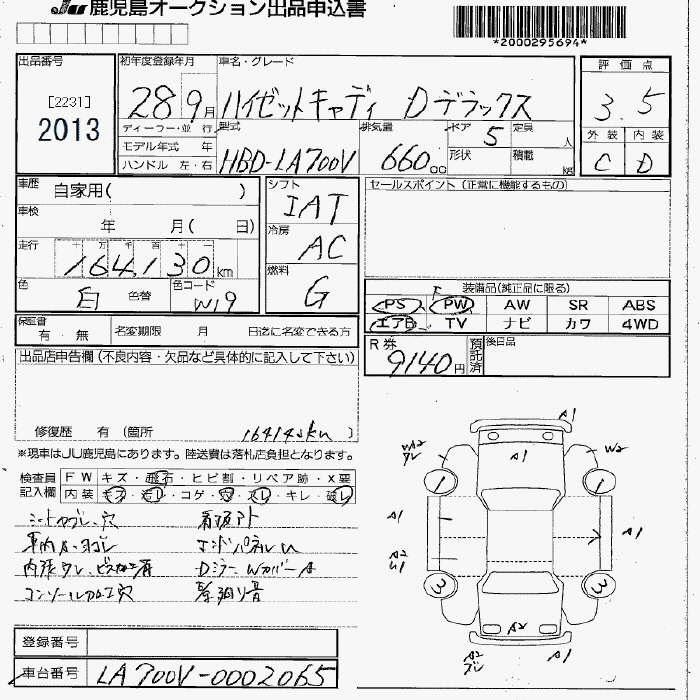 JU 鹿児島オークション出品申込書
*2000295694*
出品番号
[2231]
2013
初年度登録年月
28 9月
車名・グレード
ハイゼットキャディ Dデラックス
評価点
3.5
外装 内装
C D
ディーラー・並行
モデル年式 年
ハンドル 左・右
型式
HBD-LA700V
排気量
660cc
ドア 5
形状
定員 人
積載 kg
車歴 自家用( )
車検 年 月( 日)
走行 十 万 千 百 十 一
164,130km
色 白 色替
色コード W19
シフト
IAT
冷房
AC
燃料
G
セールスポイント (正常に機能するもの)
装備品(純正品に限る)
PS PW AW SR ABS
エアB TV ナビ カワ 4WD
保証書
有・無
名変期限 月 日迄に名変できる方
R券
9140円
預託済
後日品
出品店申告欄(不良内容・欠品など具体的に記入して下さい)
修復歴 有 (箇所 )
164140km
※現車はJU鹿児島にあります。陸送費は落札店負担となります。
検査員
記入欄
FW キズ・飛石・ヒビ割・リペア跡・X要
内装 キズ・汚れ・コゲ・穴・スレ・キレ・破レ
シートヨゴレ、穴
車内キズ、ヨゴレ
コンソール加工穴
看板アト
エンドパネルU
A1
A2
W2
1
1
A1
A1
A2
U1
3
3
A2
A2
A1
登録番号
車台番号
LA700V-0002065